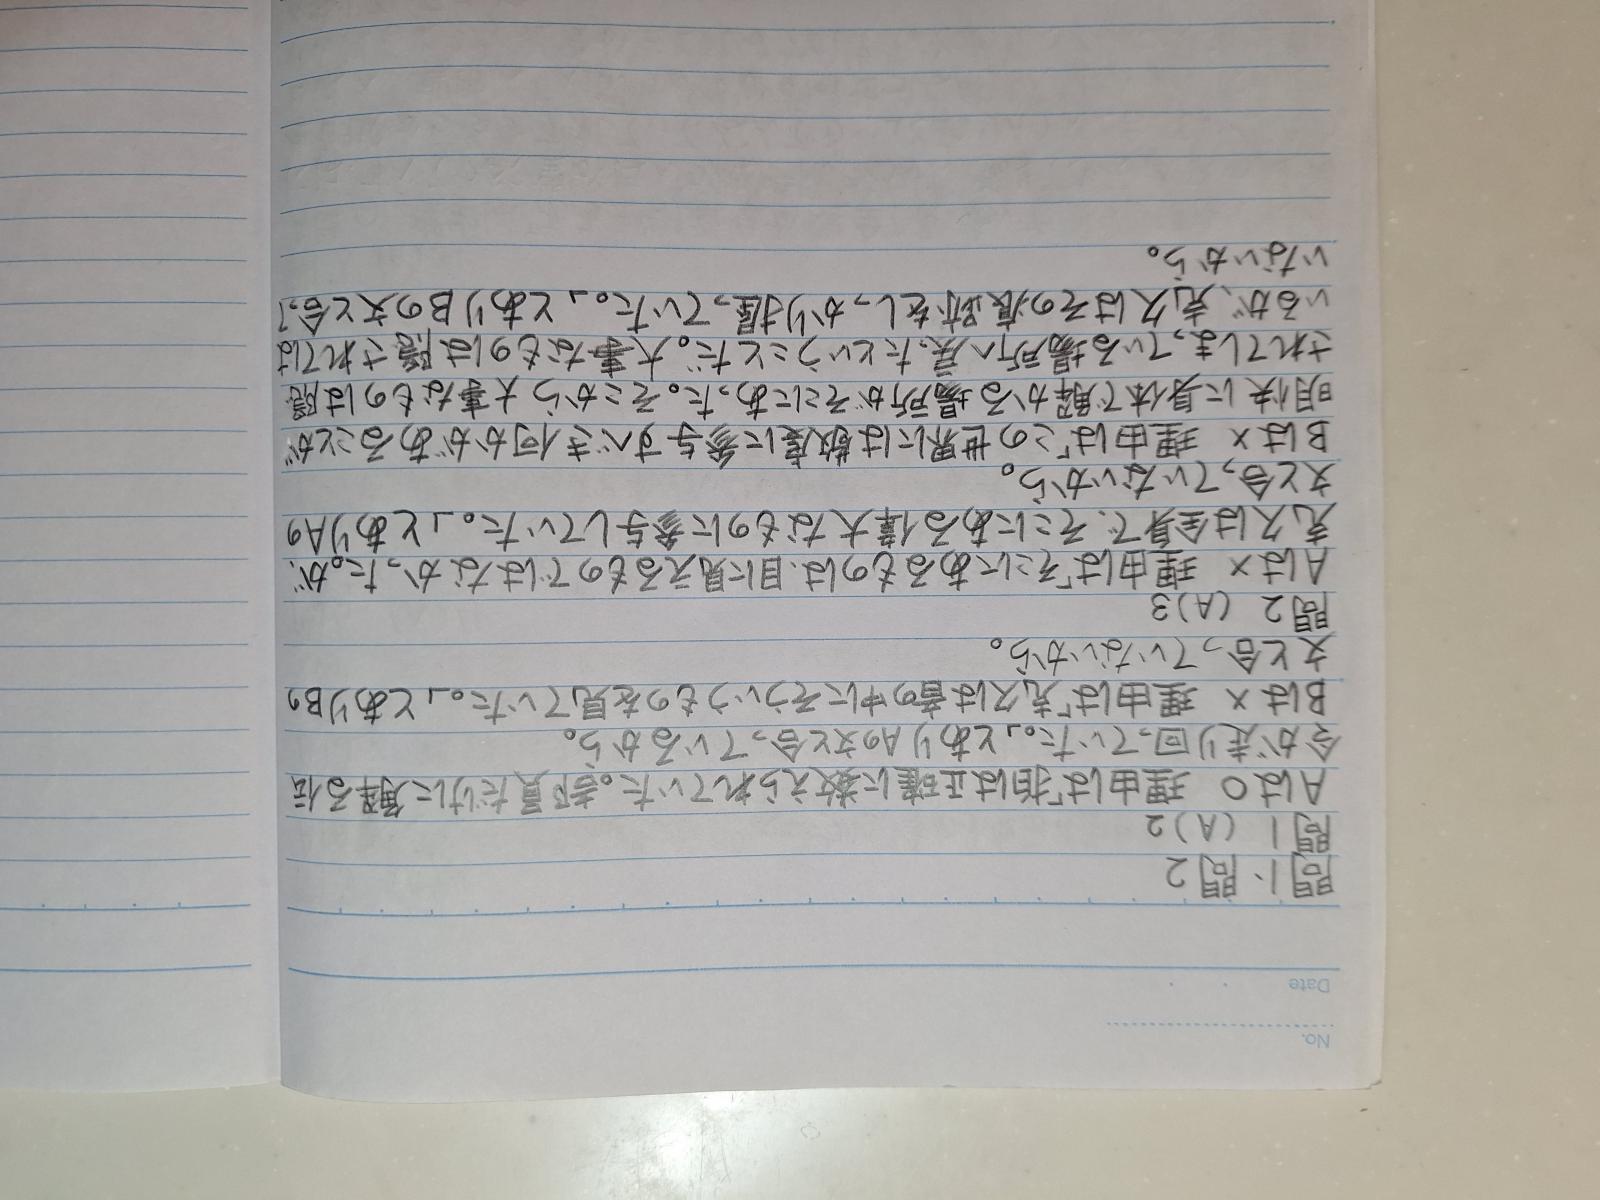 No.
Date
問1・問2
問1 (A)2
Aは○ 理由は「拍は正確に数えられていた。部員だけに解る伝
令が走り回っていた。」とありAの文と合っているから。
Bは× 理由は「克久は音の中にそういうものを見ていた。」とありBの
文と合っていないから。
問2 (A)3
Aは× 理由は「そこにあるものは、目に見えるものではなかった。が、
克久は全身で、そこにある偉大なものに参与していた。」とありAの
文と合っていないから。
Bは× 理由は「この世界には敬虔に参与すべき何かがあることが
明快に身体で解かる場所がそこにあった。そこから大事なものは隠
されてしまっている場所へ戻ったということだ。大事なものは隠されては
いるが、克久はその痕跡をしっかり握っていた。」とありBの文と合って
いないから。